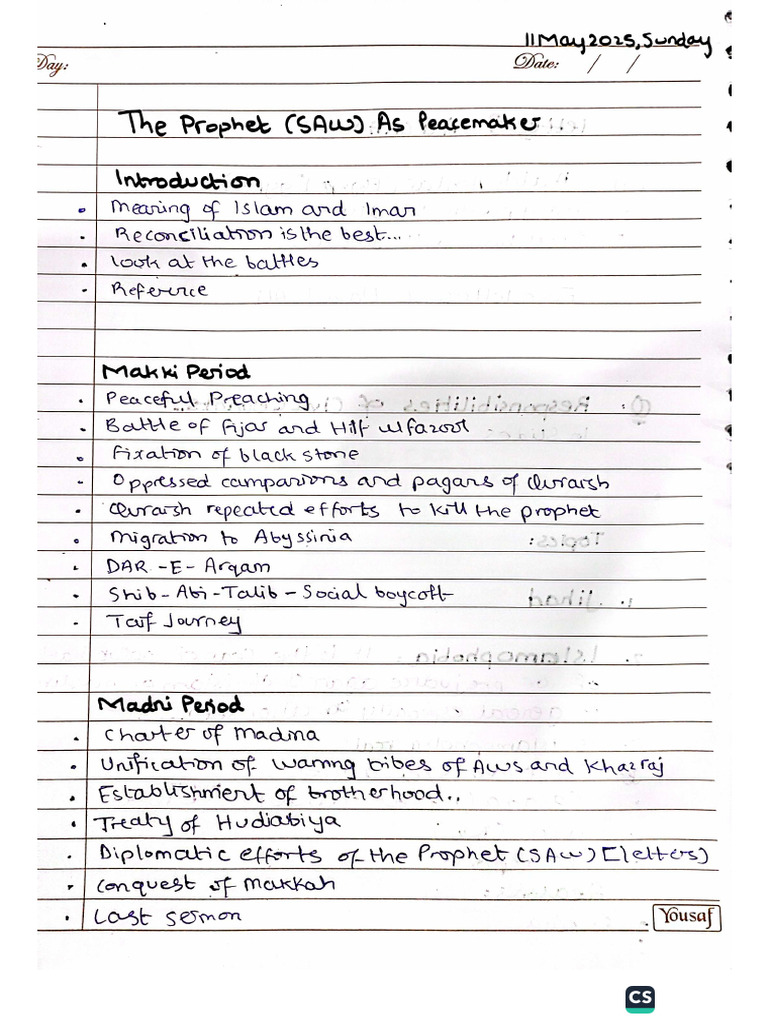 11 May 2025, Sunday
Day:
Date: / /
The Prophet (SAW) As Peacemaker
Introduction
• Meaning of Islam and Iman
• Reconciliation is the best...
• look at the battles
• Reference
Makki Period
• Peaceful Preaching
• Battle of Fijar and Hilf ulfazool
• Fixation of black stone
• Oppressed companions and pagans of Quraish
• Quraish repeated efforts to kill the prophet
• Migration to Abyssinia
• DAR-E-Arqam
• Shib-Abi-Talib-Social boycott
• Taif Journey
Madni Period
• Charter of Madina
• Unification of warring tribes of Aws and Khazraj
• Establishment of brotherhood..
• Treaty of Hudiabiya
• Diplomatic efforts of the Prophet (SAW) [letters]
• Conquest of Makkah
• Last sermon
Yousaf
CS